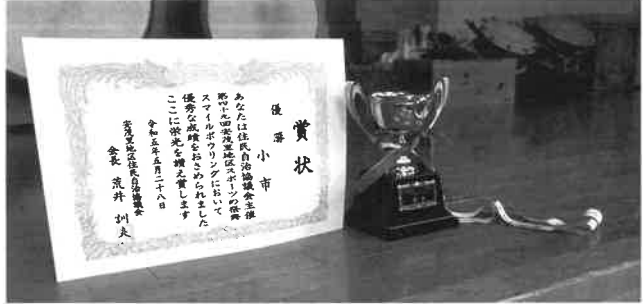 賞状
優勝
小市
あなたは住民自治協議会主催
第四十九回安茂里地区スポーツの祭典
スマイルボウリングにおいて
優秀な成績をおさめられました
ここに栄光を讃え賞します
令和五年五月二十八日
安茂里地区住民自治協議会
会長 荒井 訓